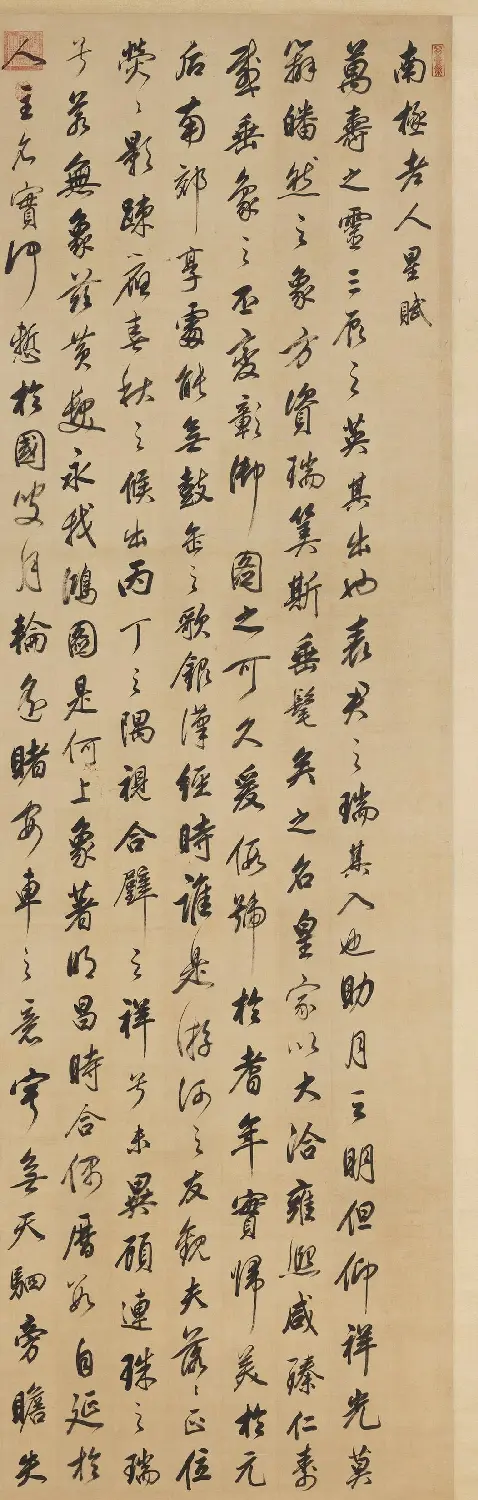 南極老人星賦
萬壽之靈三辰之英其出也表君之瑞其入也助月之明但仰祥光莫
辨皤然之象方資瑞筭斯垂髦矣之名皇家以大洽雍熙咸臻仁壽
感垂象之丕變彰御圖之可久爰假號於耆年實歸美於元
后南郊享處能無鼓缶之歌銀漢經時誰是游河之友觀夫落落正位
熒熒影疎應春秋之候出丙丁之隅視合璧之祥兮未異顧連珠之瑞
兮若無象茲黃耈永我鴻圖是何上象著明昌時合偶曆數自延於
人主名實仰慙於國叟月輪遙睹安車之意寧無天駟旁瞻失